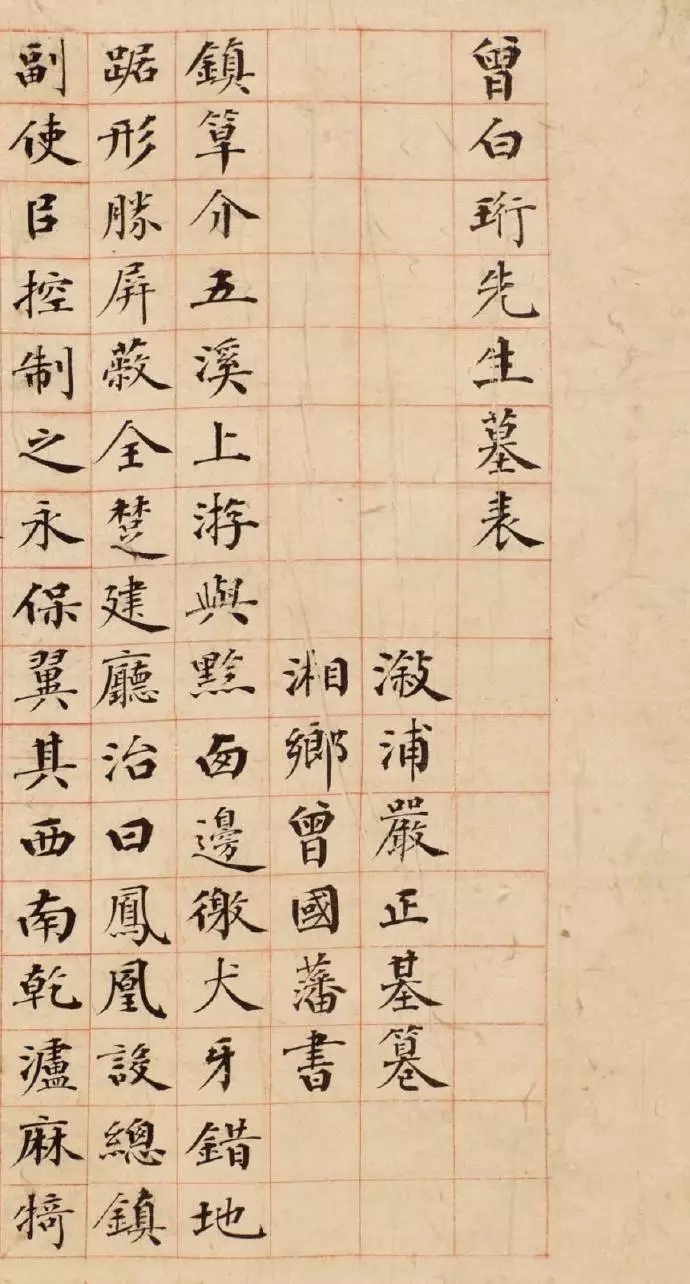 曾白珩先生墓表
溆浦嚴正基篹
湘鄉曾國藩書
鎮筸介五溪上游與黔囪邊徼犬牙錯地
踞形勝屏蔽全楚建廳治曰鳳凰設總鎮
副使臣控制之永保翼其西南乾瀘麻犄